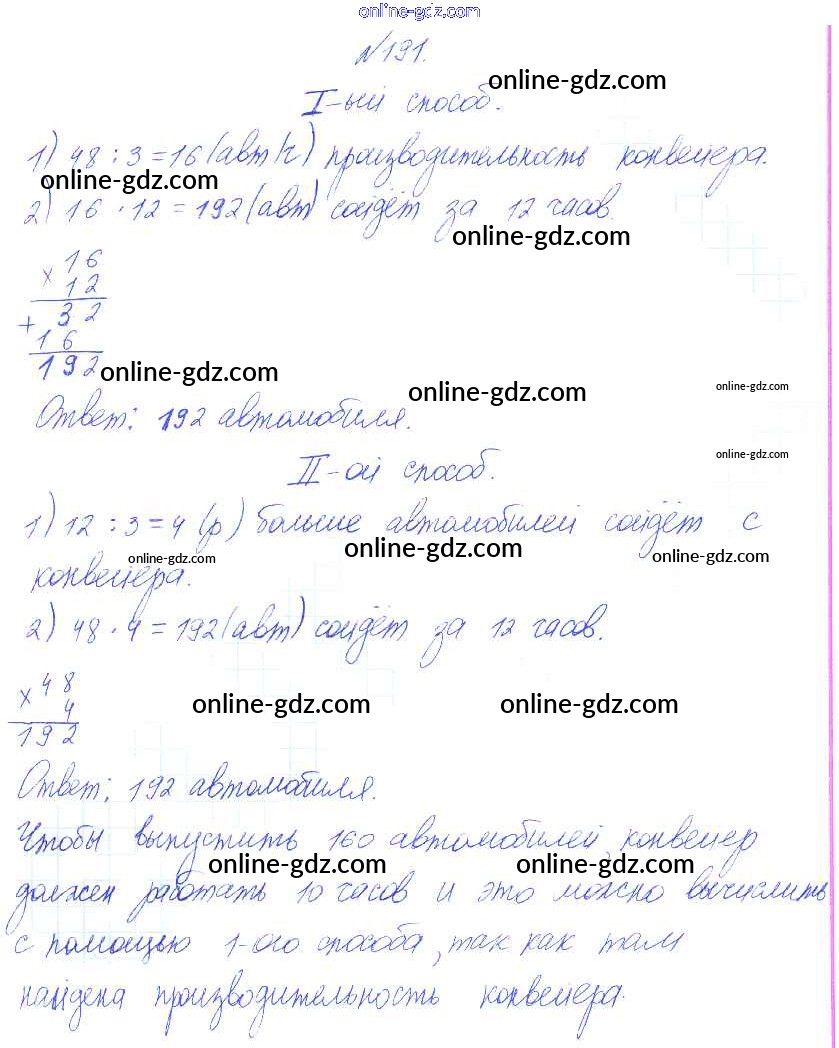 online-gdz.com
№191.
online-gdz.com
I-ый способ.
1) 48 : 3 = 16 (авт/ч) производительность конвейера.
online-gdz.com
2) 16 · 12 = 192 (авт) сойдёт за 12 часов.
online-gdz.com
16
× 12
+ 32
16
192
online-gdz.com
online-gdz.com
online-gdz.com
Ответ: 192 автомобиля.
online-gdz.com
II-ой способ.
1) 12 : 3 = 4 (р) больше автомобилей сойдёт с
online-gdz.com
online-gdz.com
online-gdz.com
конвейера.
2) 48 · 4 = 192 (авт) сойдёт за 12 часов.
× 48
4
192
online-gdz.com
online-gdz.com
Ответ: 192 автомобиля.
Чтобы выпустить 160 автомобилей, конвейер
online-gdz.com
online-gdz.com
должен работать 10 часов и это можно вычислить
с помощью 1-ого способа, так как там
найдена производительность конвейера.